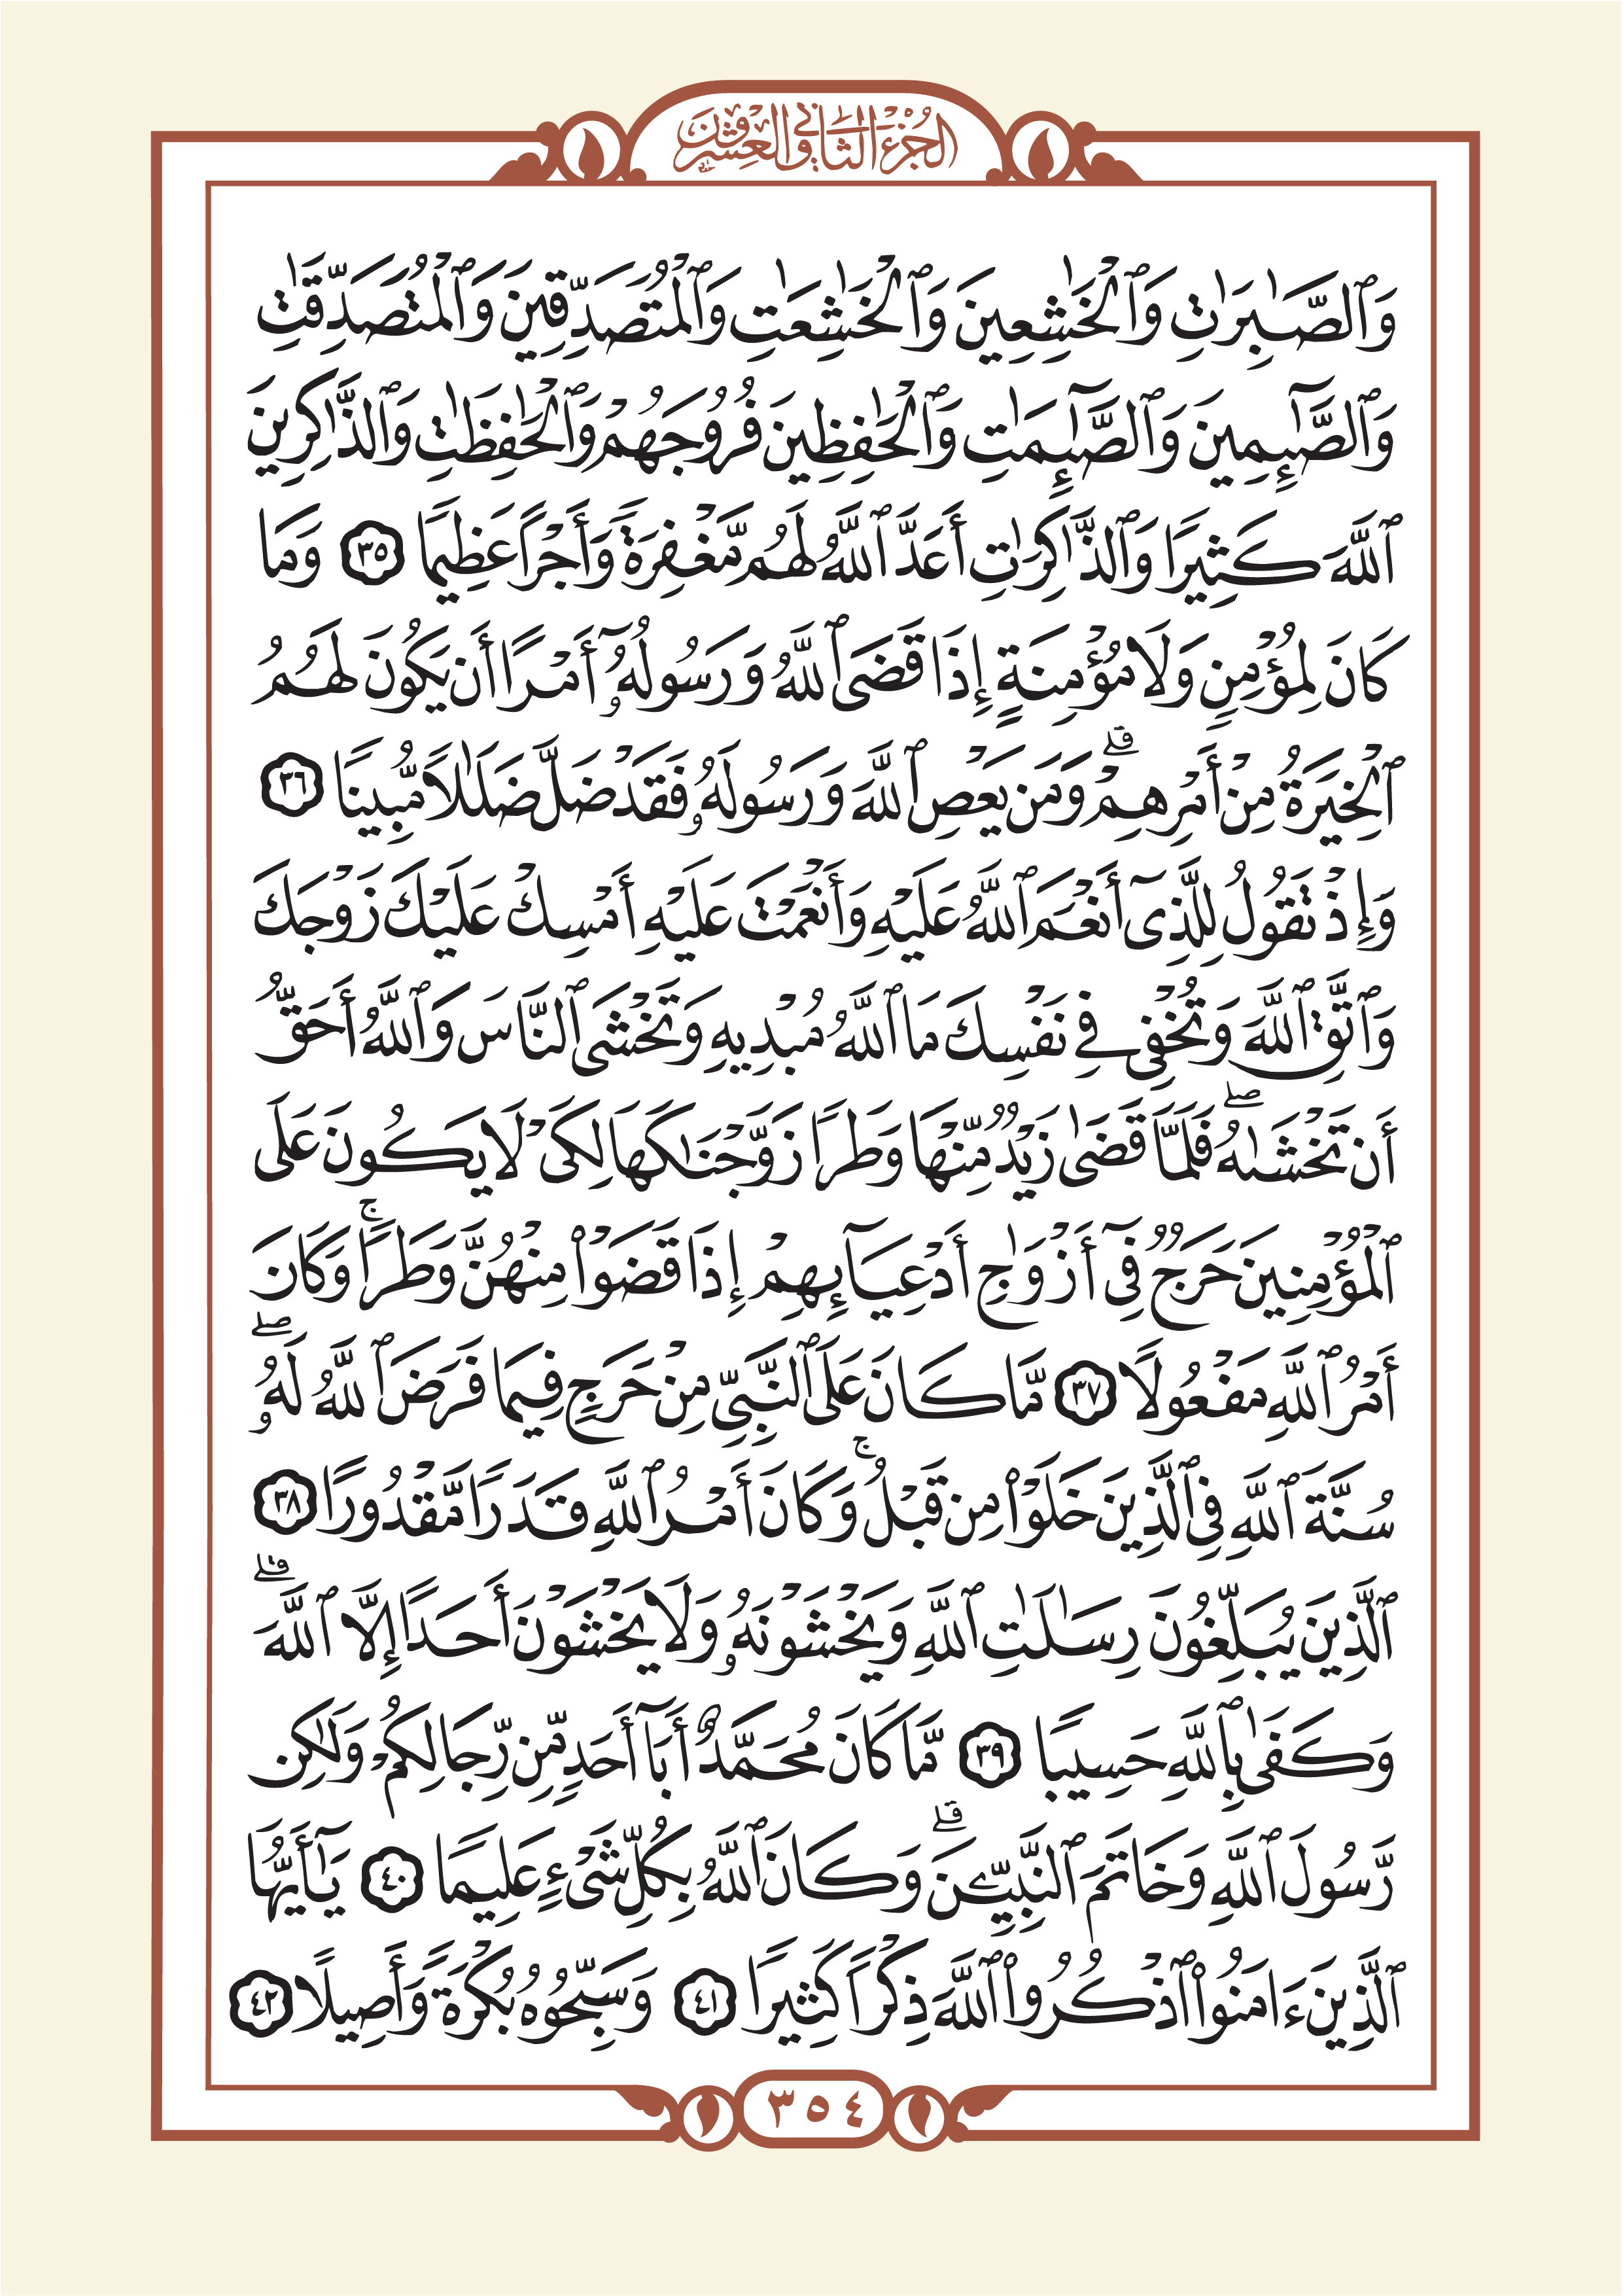 الجزء الثاني والعشرون
وَٱلصَّـٰبِرَٰتِ وَٱلْخَـٰشِعِينَ وَٱلْخَـٰشِعَـٰتِ وَٱلْمُتَصَدِّقِينَ وَٱلْمُتَصَدِّقَـٰتِ
وَٱلصَّـٰٓئِمِينَ وَٱلصَّـٰٓئِمَـٰتِ وَٱلْحَـٰفِظِينَ فُرُوجَهُمْ وَٱلْحَـٰفِظَـٰتِ وَٱلذَّٰكِرِينَ
ٱللَّهَ كَثِيرًا وَٱلذَّٰكِرَٰتِ أَعَدَّ ٱللَّهُ لَهُم مَّغْفِرَةً وَأَجْرًا عَظِيمًا ٣٥ وَمَا
كَانَ لِمُؤْمِنٍ وَلَا مُؤْمِنَةٍ إِذَا قَضَى ٱللَّهُ وَرَسُولُهُۥٓ أَمْرًا أَن يَكُونَ لَهُمُ
ٱلْخِيَرَةُ مِنْ أَمْرِهِمْ ۗ وَمَن يَعْصِ ٱللَّهَ وَرَسُولَهُۥ فَقَدْ ضَلَّ ضَلَـٰلًا مُّبِينًا ٣٦
وَإِذْ تَقُولُ لِلَّذِىٓ أَنْعَمَ ٱللَّهُ عَلَيْهِ وَأَنْعَمْتَ عَلَيْهِ أَمْسِكْ عَلَيْكَ زَوْجَكَ
وَٱتَّقِ ٱللَّهَ وَتُخْفِى فِى نَفْسِكَ مَا ٱللَّهُ مُبْدِيهِ وَتَخْشَى ٱلنَّاسَ وَٱللَّهُ أَحَقُّ
أَن تَخْشَىٰهُ ۖ فَلَمَّا قَضَىٰ زَيْدٌ مِّنْهَا وَطَرًا زَوَّجْنَـٰكَهَا لِكَىْ لَا يَكُونَ عَلَى
ٱلْمُؤْمِنِينَ حَرَجٌ فِىٓ أَزْوَٰجِ أَدْعِيَآئِهِمْ إِذَا قَضَوْا۟ مِنْهُنَّ وَطَرًا ۚ وَكَانَ
أَمْرُ ٱللَّهِ مَفْعُولًا ٣٧ مَّا كَانَ عَلَى ٱلنَّبِىِّ مِنْ حَرَجٍ فِيمَا فَرَضَ ٱللَّهُ لَهُۥ ۖ
سُنَّةَ ٱللَّهِ فِى ٱلَّذِينَ خَلَوْا۟ مِن قَبْلُ ۚ وَكَانَ أَمْرُ ٱللَّهِ قَدَرًا مَّقْدُورًا ٣٨
ٱلَّذِينَ يُبَلِّغُونَ رِسَـٰلَـٰتِ ٱللَّهِ وَيَخْشَوْنَهُۥ وَلَا يَخْشَوْنَ أَحَدًا إِلَّا ٱللَّهَ ۗ
وَكَفَىٰ بِٱللَّهِ حَسِيبًا ٣٩ مَّا كَانَ مُحَمَّدٌ أَبَآ أَحَدٍ مِّن رِّجَالِكُمْ وَلَـٰكِن
رَّسُولَ ٱللَّهِ وَخَاتَمَ ٱلنَّبِيِّـۧنَ ۗ وَكَانَ ٱللَّهُ بِكُلِّ شَىْءٍ عَلِيمًا ٤٠ يَـٰٓأَيُّهَا
ٱلَّذِينَ ءَامَنُوا۟ ٱذْكُرُوا۟ ٱللَّهَ ذِكْرًا كَثِيرًا ٤١ وَسَبِّحُوهُ بُكْرَةً وَأَصِيلًا ٤٢
٣٥٤